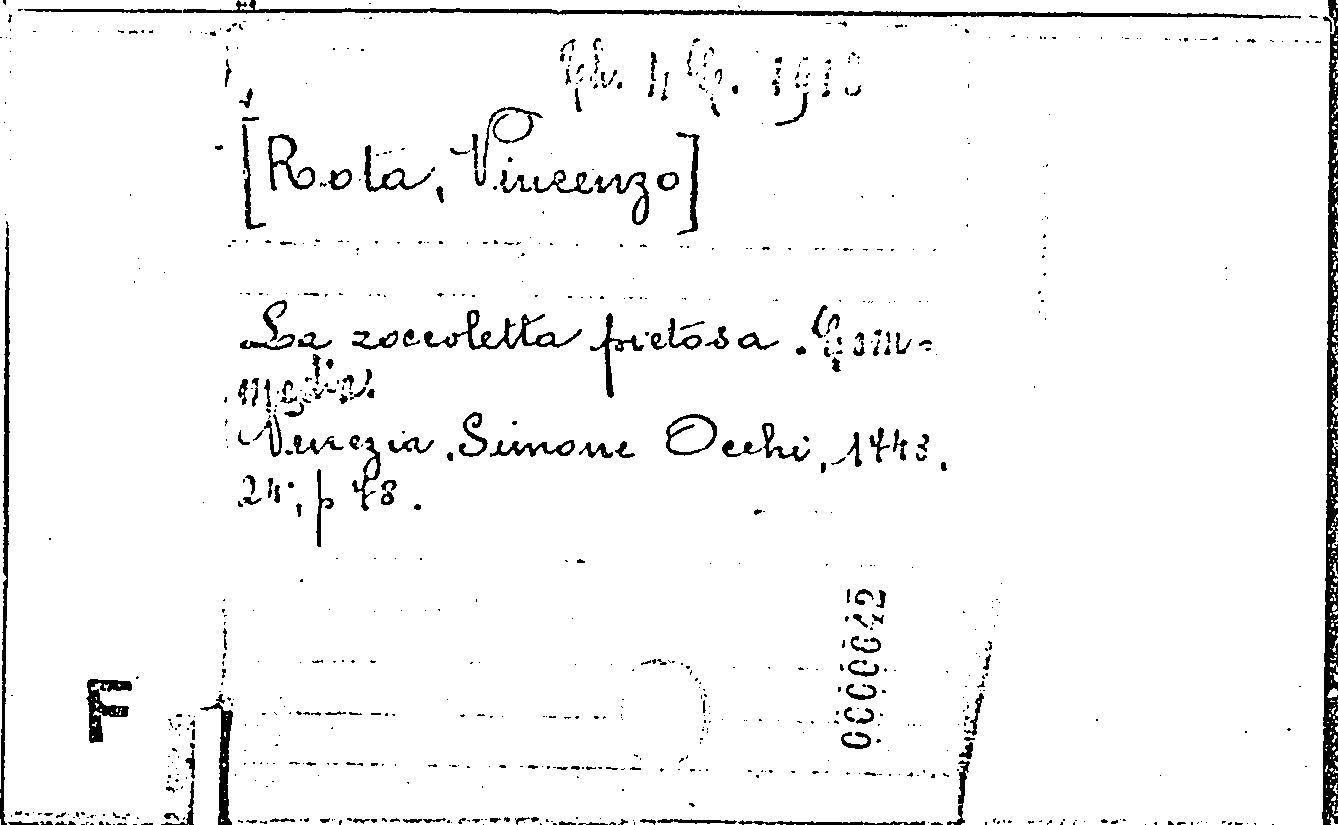 [Rota, Vincenzo]
La zoccoletta pietosa. Com=
media.
Venezia, Simone Occhi, 1743.
24°, p 78.
0000042
F